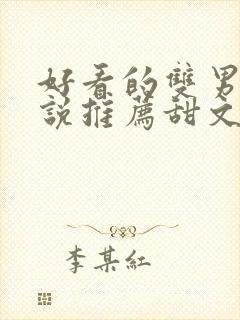 好看的雙男
說推薦甜文
李某紅